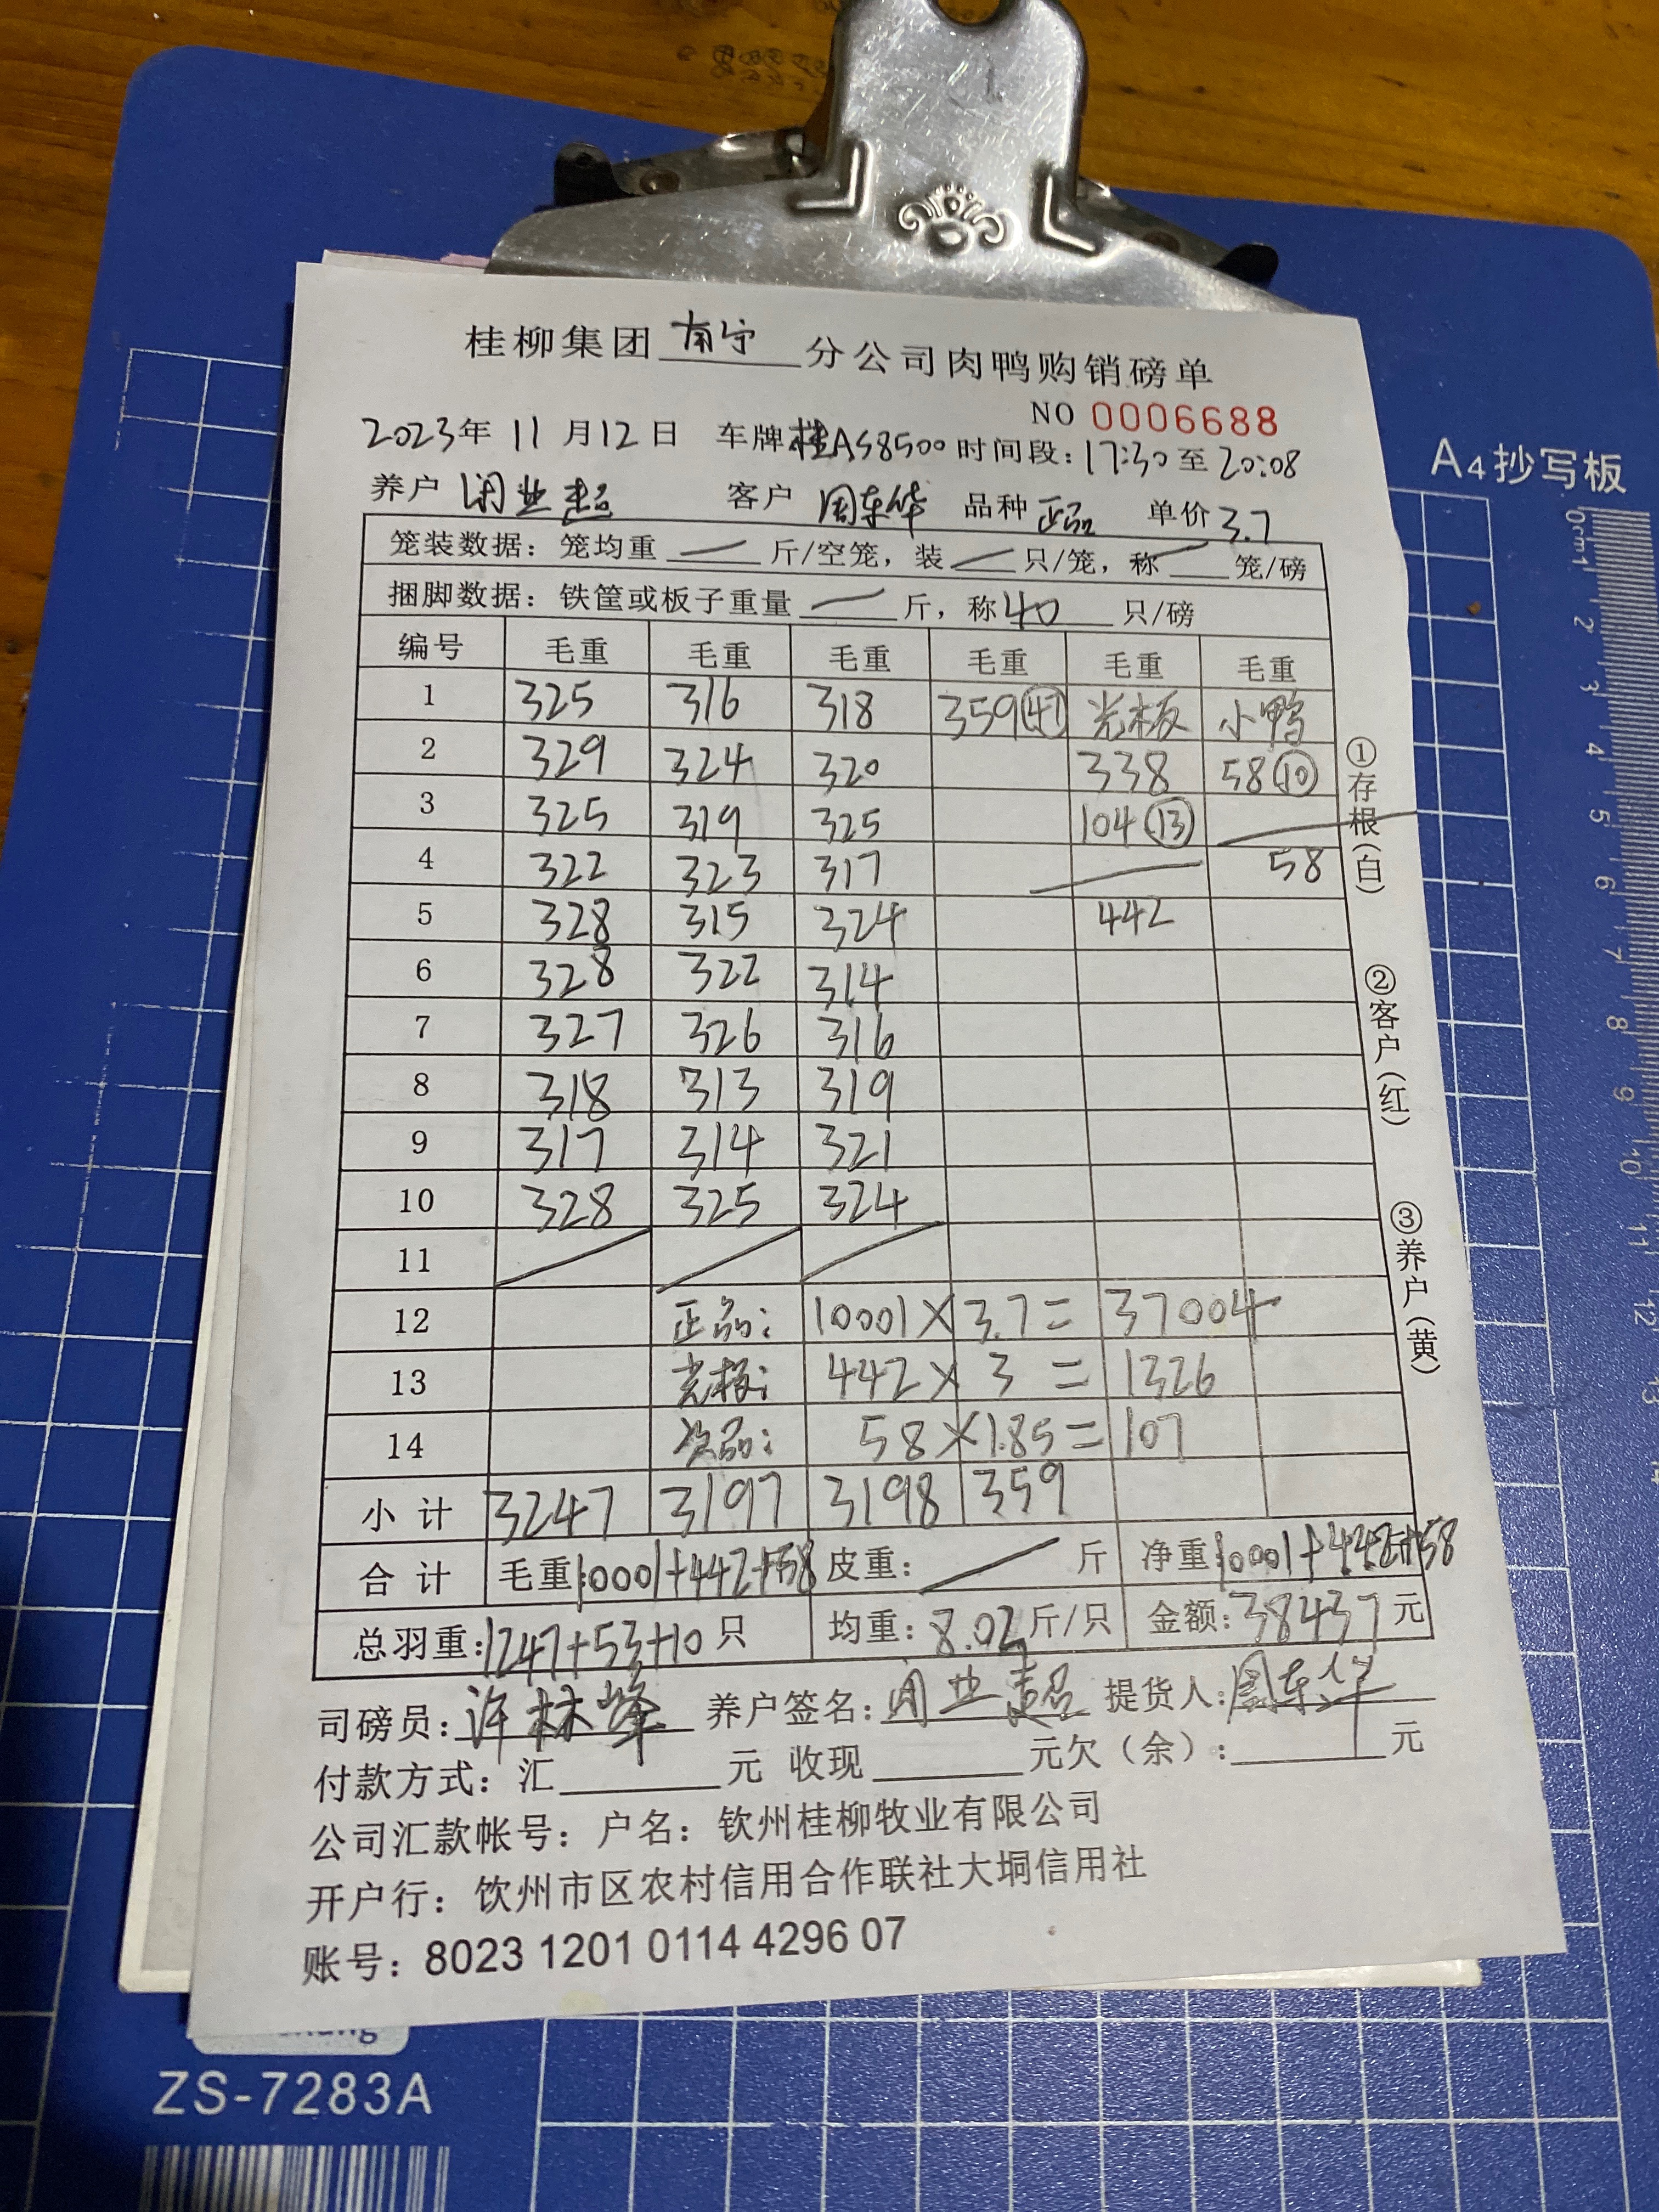 桂柳集团 南宁 分公司肉鸭购销磅单
NO 0006688
2023年 11月12日 车牌桂AS8500 时间段:17:30至20:08
养户 闭业超 客户 周东华 品种 正品 单价 3.7
笼装数据: 笼均重 斤/空笼, 装 只/笼, 称 笼/磅
捆脚数据: 铁筐或板子重量 斤, 称40 只/磅
编号 毛重 毛重 毛重 毛重 毛重 毛重
1 325 316 318 359(47) 光板 小鸭
2 329 324 320 338 58(10)
3 325 319 325 104(13)
4 322 323 317 58
5 328 315 324 442
6 328 322 314
7 327 326 316
8 318 313 319
9 317 314 321
10 328 325 324
11
12 正品: 10001×3.7= 37004
13 光板: 442×3= 1326
14 次品: 58×1.85= 107
小计 3247 3197 3198 359
合计 毛重:10001+442+58 皮重: 斤 净重:10001+442+58
总羽重:1247+53+10只 均重:8.02斤/只 金额:38437元
司磅员:许林峰 养户签名:闭业超 提货人:周东华
付款方式: 汇 元 收现 元欠(余): 元
公司汇款帐号: 户名: 钦州桂柳牧业有限公司
开户行: 钦州市区农村信用合作联社大垌信用社
账号: 8023 1201 0114 4296 07
①存根(白) ②客户(红) ③养户(黄)
A4抄写板
0cm1 2 3 4 5 6 7 8 9 10 11 12 13 14
ZS-7283A